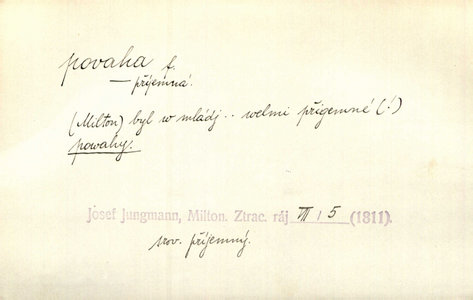 povaha f.
— příjemná.
(Milton) byl w mládj .. welmi přigemné (!)
powahy.
Josef Jungmann, Milton. Ztrac. ráj VII, 5 (1811).
srov. příjemný.